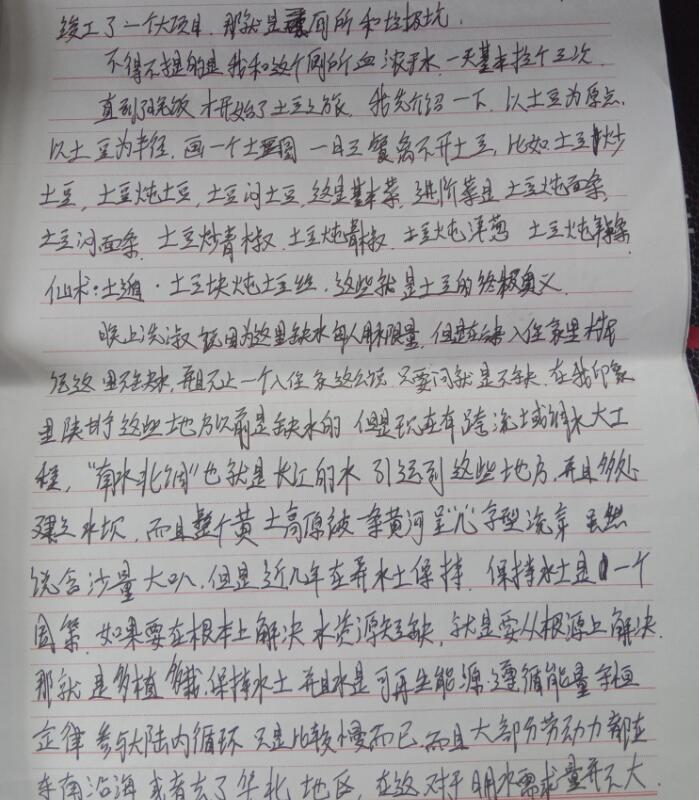 竣工了一个大项目，那就是厕所和垃圾坑.
不得不提的是我和这个厕所血浓于水.一天基本拉个三次.
直到了晚饭 才开始了土豆之旅. 我先介绍一下. 以土豆为原点.
以土豆为半径, 画一个土豆圆 一日三餐离不开土豆, 比如土豆炒
土豆, 土豆炖土豆, 土豆闷土豆, 这是基本菜, 进阶菜是 土豆炖面条,
土豆闷面条 土豆炒青椒 土豆炖青椒 土豆炖洋葱 土豆炖
仙术:土遁·土豆块炖土豆丝. 这些就是土豆的终极奥义.
晚上洗漱 因为这里缺水每人限量, 但是在入住家里村民
说这里不缺水, 并且上一个入住家这么说 只要问就是不缺. 在我印象
里陕甘宁这些地方以前是缺水的 但是现在有跨流域调水大工
程, "南水北调"也就是长江的水 引运到这些地方, 并且多处
建立水坝, 而且整个黄土高原被一条黄河呈"几"字型流穿 虽然
说含沙量大叭, 但是近几年在弄水土保持. 保持水土是一个
国策. 如果要在根本上解决水资源短缺, 就是要从根源上解决.
那就是多植 保持水土 并且水是可再生能源 遵循能量守恒
定律 参与大陆内循环 只是比较慢而已. 而且大部分劳动力都在
东南沿海 或者去了华北地区, 在这对于用水需求量并不大.